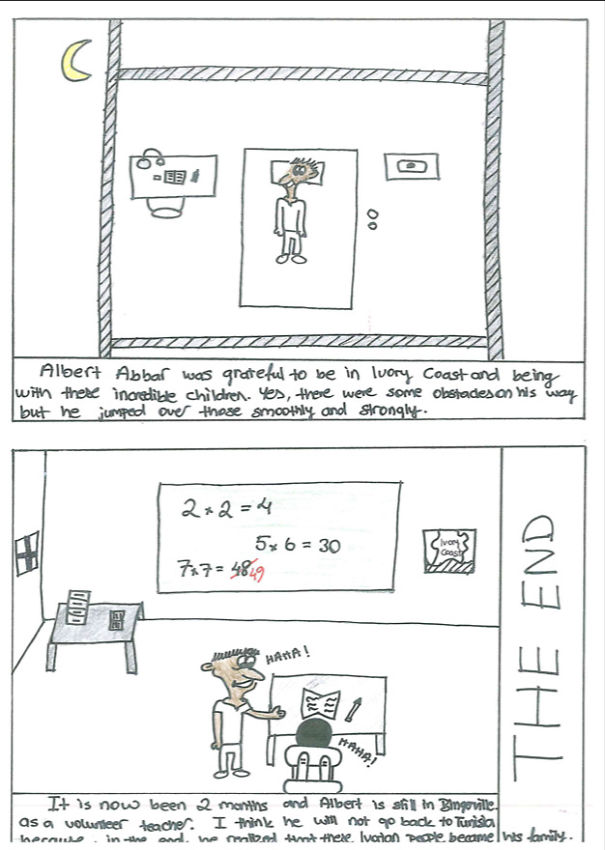 Albert Abbar was grateful to be in Ivory Coast and being
with these incredible children. Yes, there were some obstacles on his way
but he jumped over those smoothly and strongly.
2 * 2 = 4
5 * 6 = 30
7 * 7 = 48 49
Ivory
Coast
THE END
HAHA!
HAHA!
It is now been 2 months and Albert is still in Bingerville
as a volunteer teacher. I think he will not go back to Tunisia
because, in the end, he realized that these Ivorian people became his family.